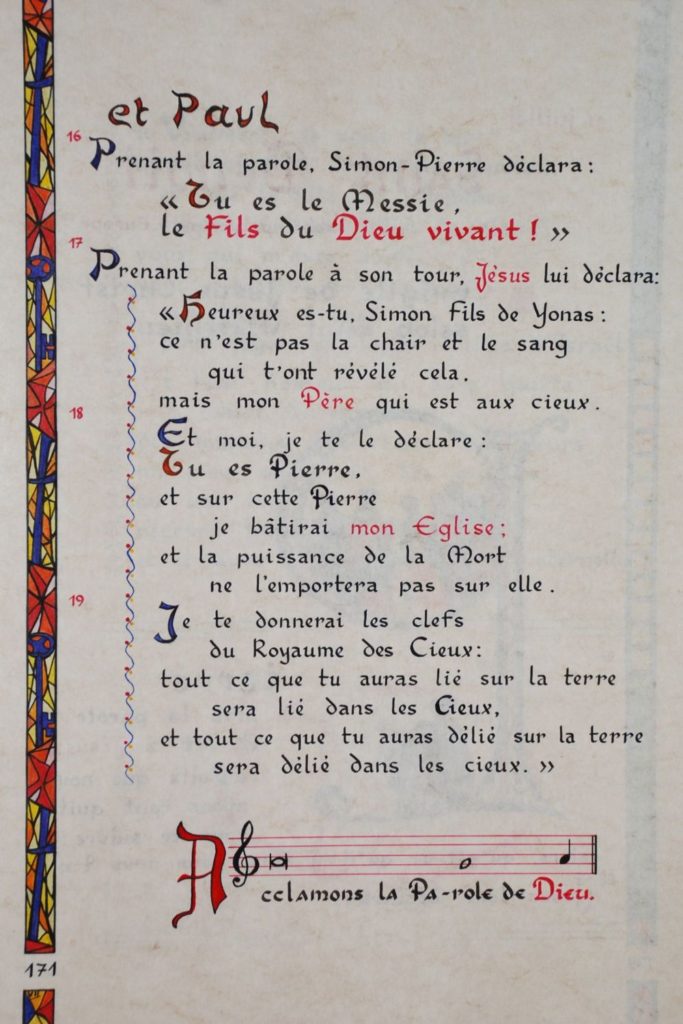 et Paul
16
Prenant la parole, Simon-Pierre déclara :
« Tu es le Messie,
le Fils du Dieu vivant ! »
17
Prenant la parole à son tour, Jésus lui déclara:
« Heureux es-tu, Simon Fils de Yonas :
ce n'est pas la chair et le sang
qui t'ont révélé cela,
mais mon Père qui est aux cieux.
18
Et moi, je te le déclare :
Tu es Pierre,
et sur cette Pierre
je bâtirai mon Eglise ;
et la puissance de la Mort
ne l'emportera pas sur elle.
19
Je te donnerai les clefs
du Royaume des Cieux:
tout ce que tu auras lié sur la terre
sera lié dans les Cieux,
et tout ce que tu auras délié sur la terre
sera délié dans les cieux. »
Acclamons la Pa-role de Dieu.
171